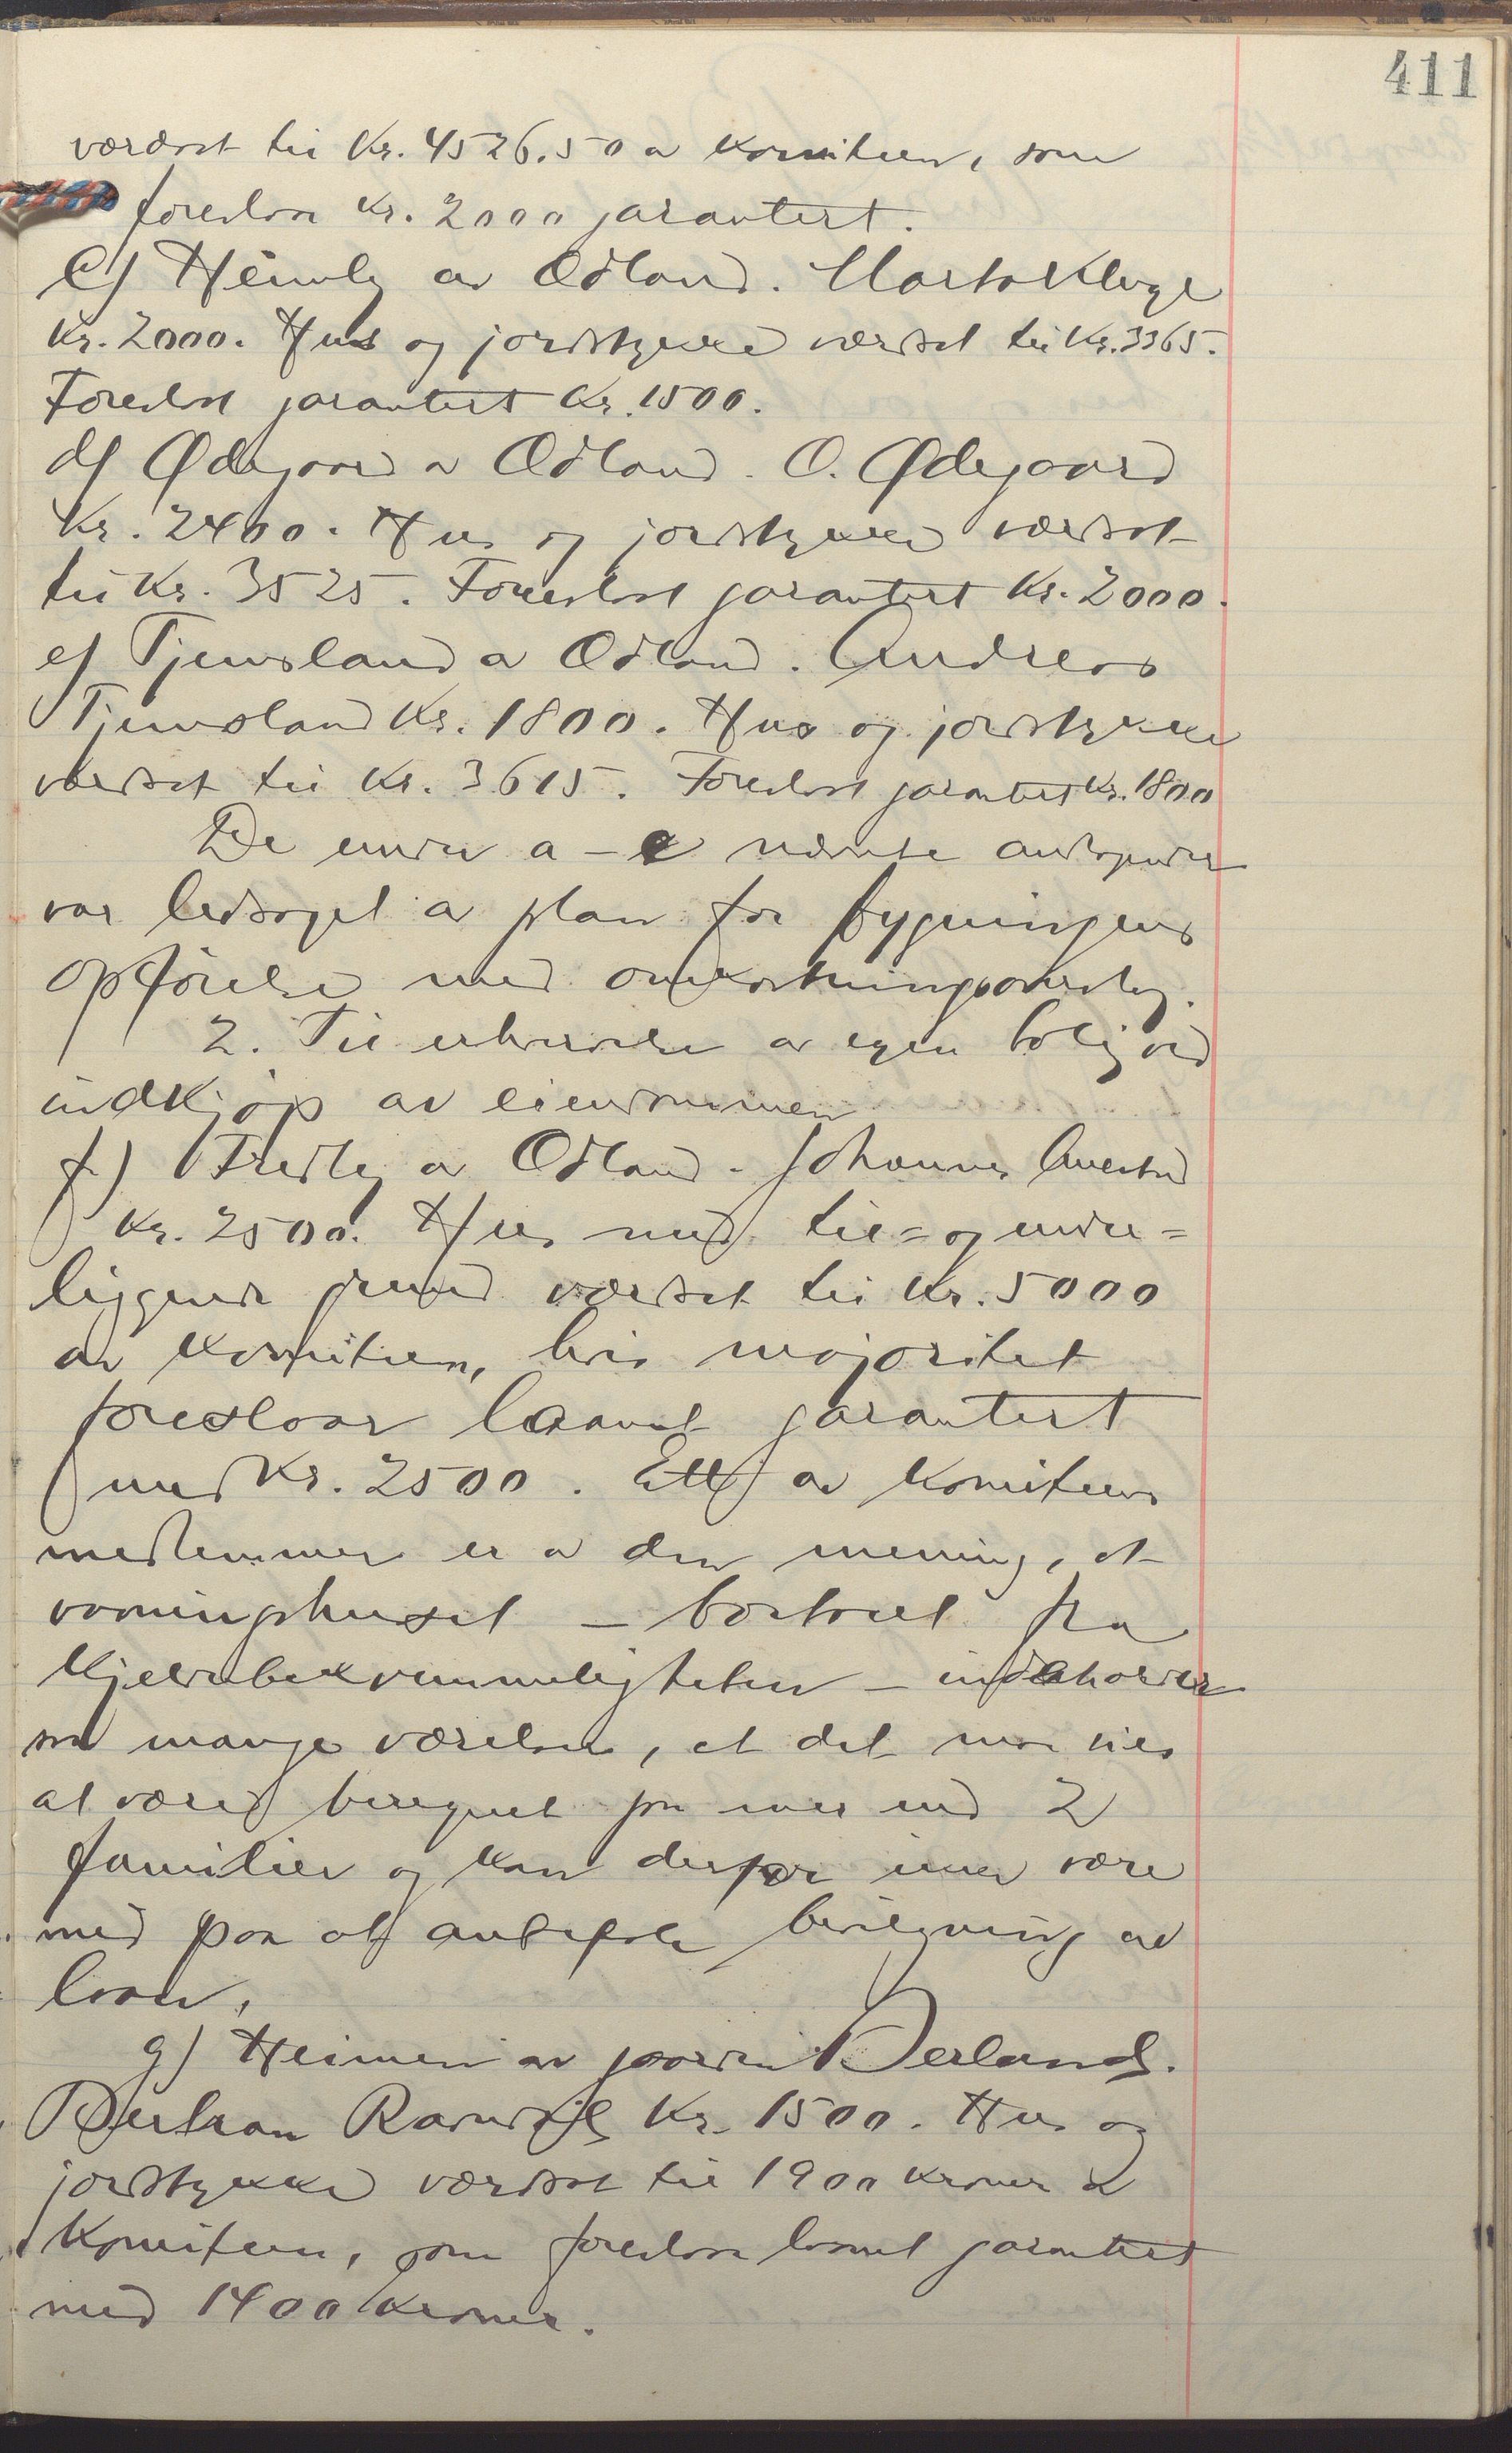 411
værdsat til Kr. 4526.50 av komiteen, som
foreslaar Kr. 2000 garantert.
c) Heimly av Ødland. Marta Kluge
Kr. 2000. Hus og jordstykke værdsat til Kr. 3365.
Foreslaat garantert Kr. 1500.
d) Ødegaard av Ødland. O. Ødegaard
Kr. 2400. Hus og jordstykke værdsat
til Kr. 3525. Foreslaat garantert Kr. 2000.
e) Tjemsland av Ødland. Andreas
Tjemsland Kr. 1800. Hus og jordstykke
værdsat til Kr. 3615. Foreslaat garantert Kr. 1800
De under a – e nævnte andragender
var ledsaget av plan for bygningens
opførelse med omkostningsoverslag.
2. Til erhvervelse av egen bolig ved
indkjøp av eiendommen
f) Fredly av Ødland. Johannes
Kr. 2500. Hus med til= og under=
liggende grund værdsat til Kr. 5000
av komiteen, hvis majoritet
foreslaar laanet garantert
med Kr. 2500. Ett av komiteens
medlemmer er av den mening, at
vaaningshuset – bortseet fra
kjelderbekvemmeligheten – indeholder
saa mange værelser, at det maa sies
at være beregnet paa mer end 2
familier og kan derfor ikke være
med paa at anbefale bevilgning av
laan.
g) Heimen av gaarden Øerland.
Bertran Kr. 1500. Hus og
jordstykke værdsat til 1900 kroner av
Komiteen, som foreslaar laanet garantert
med 1400 kroner.